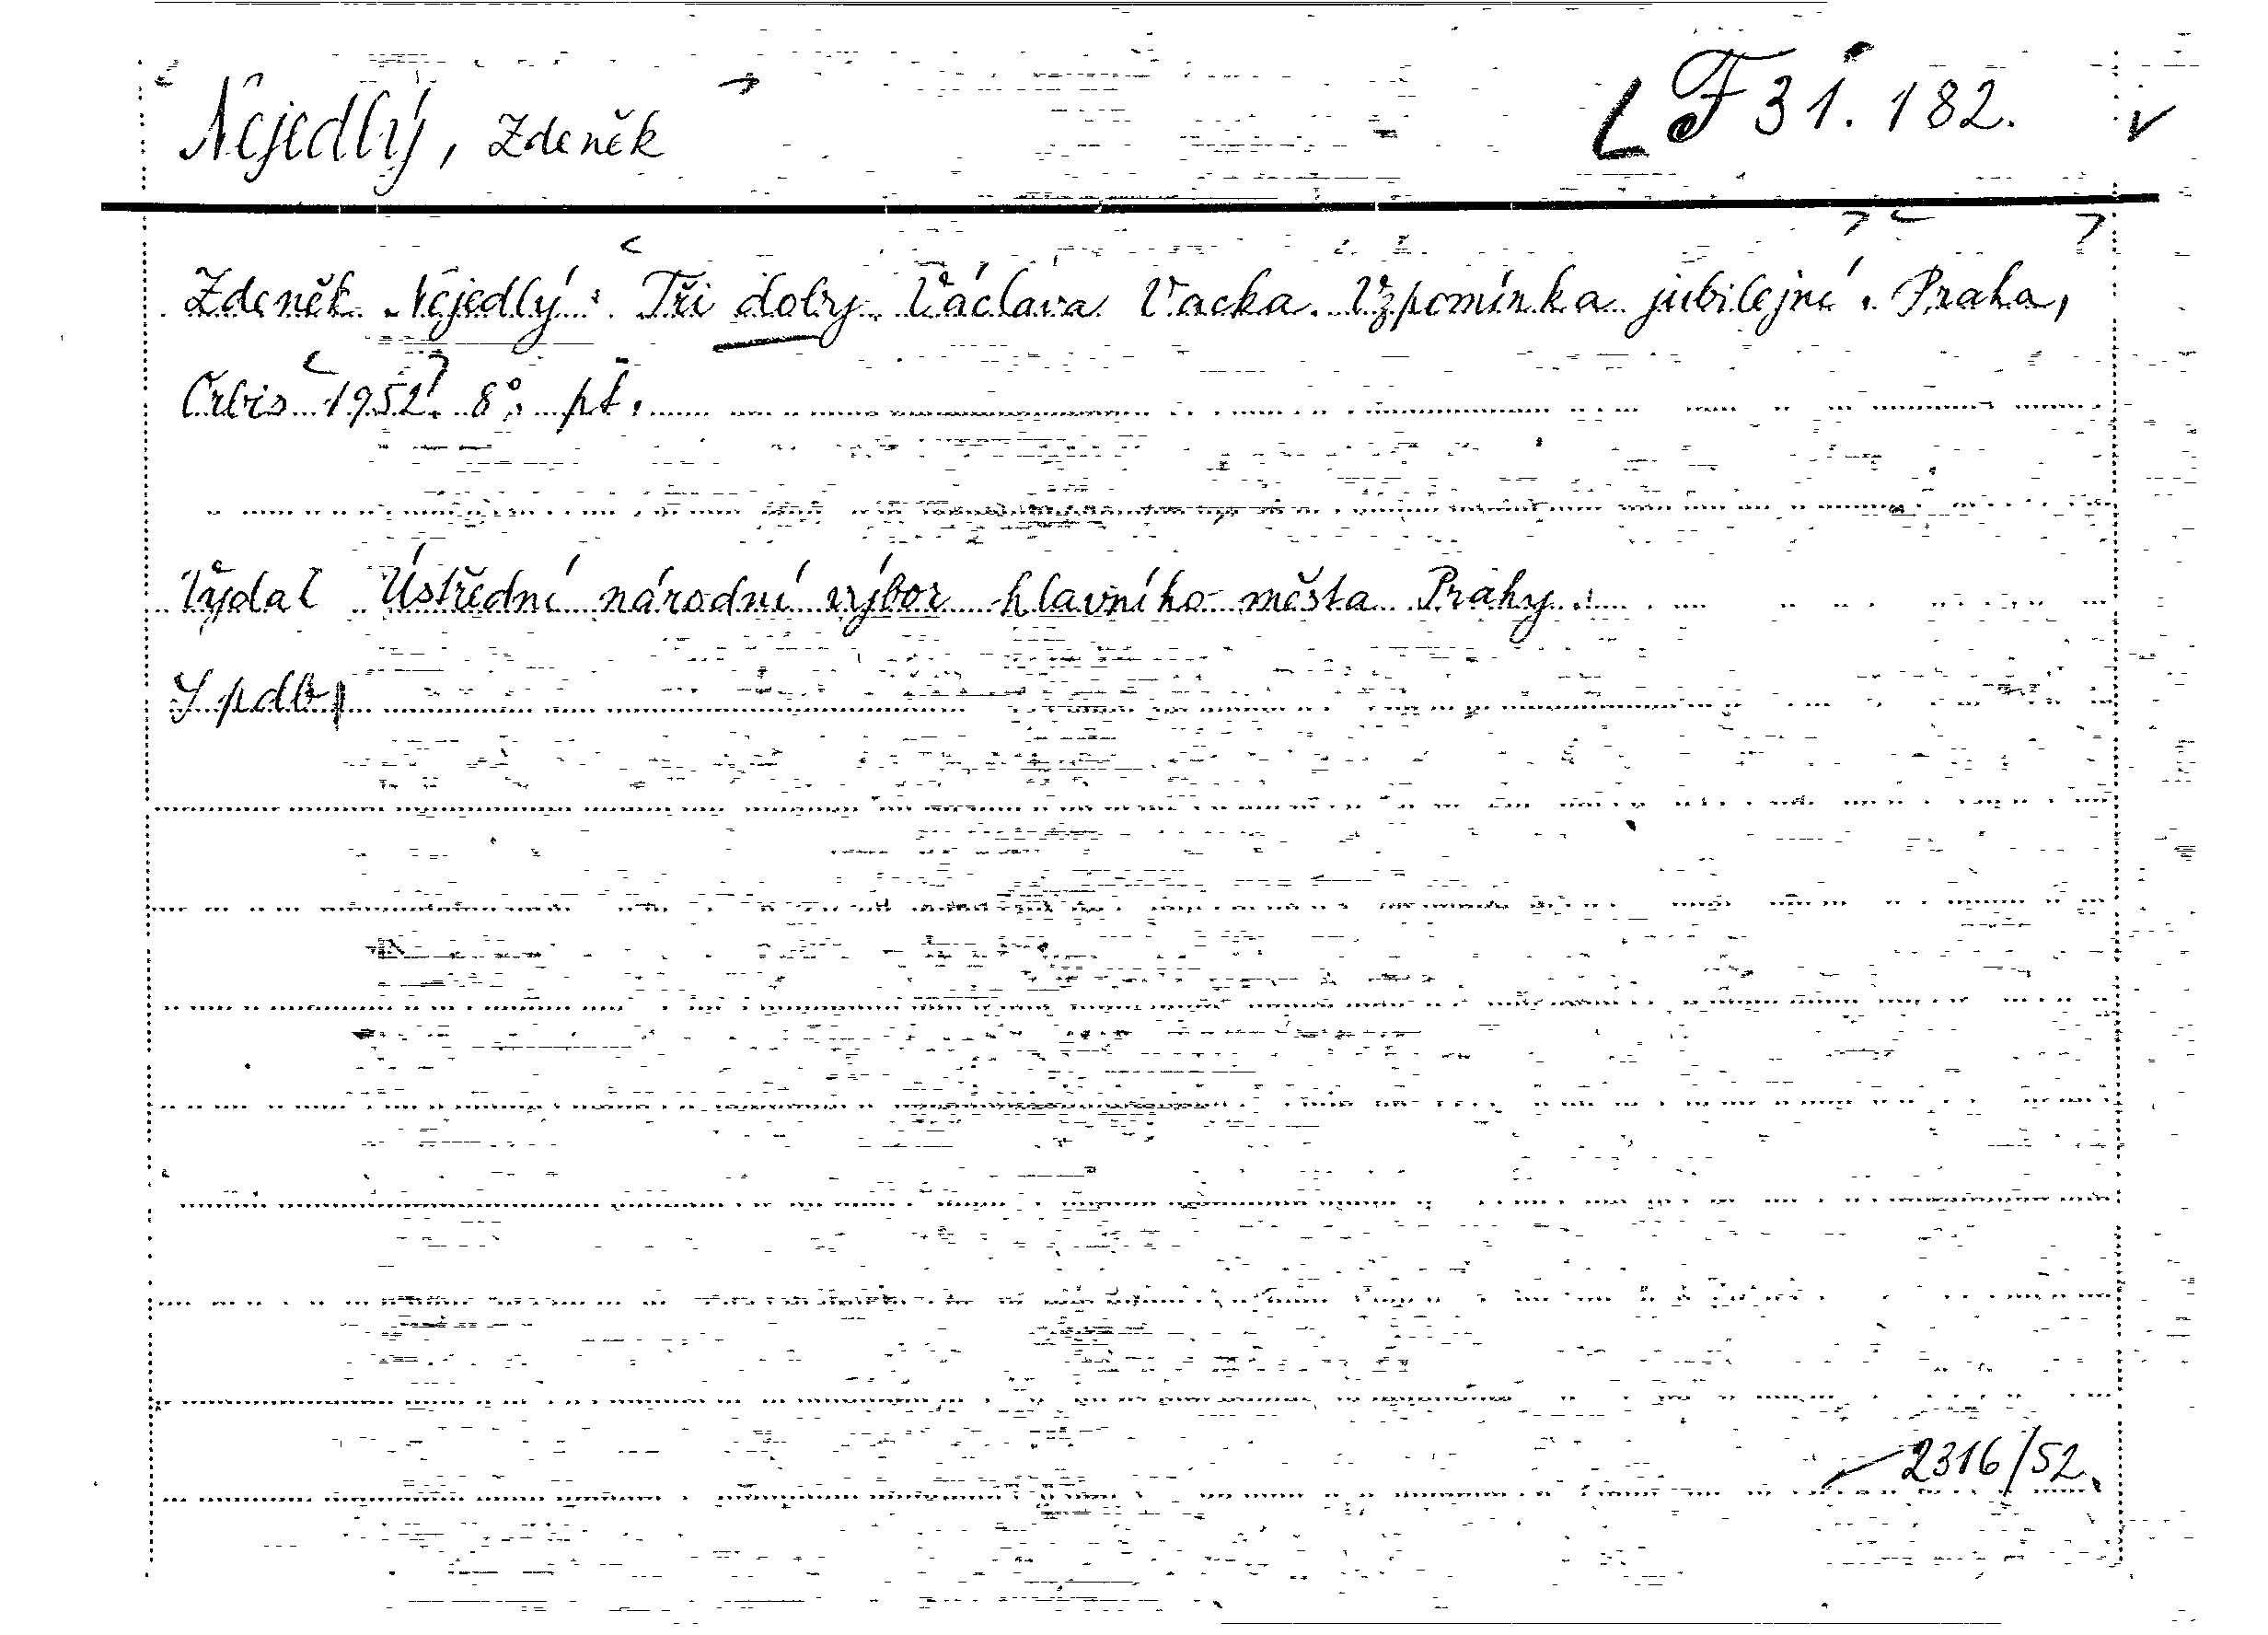 Nejedlý, Zdeněk F 31.182.
Zdeněk Nejedlý: Tři doby Václava Vacka. Vzpomínka jubilejní. Praha,
Orbis 1952. 8°. pt.
Vydal Ústřední národní výbor hlavního města Prahy.
2316/52.